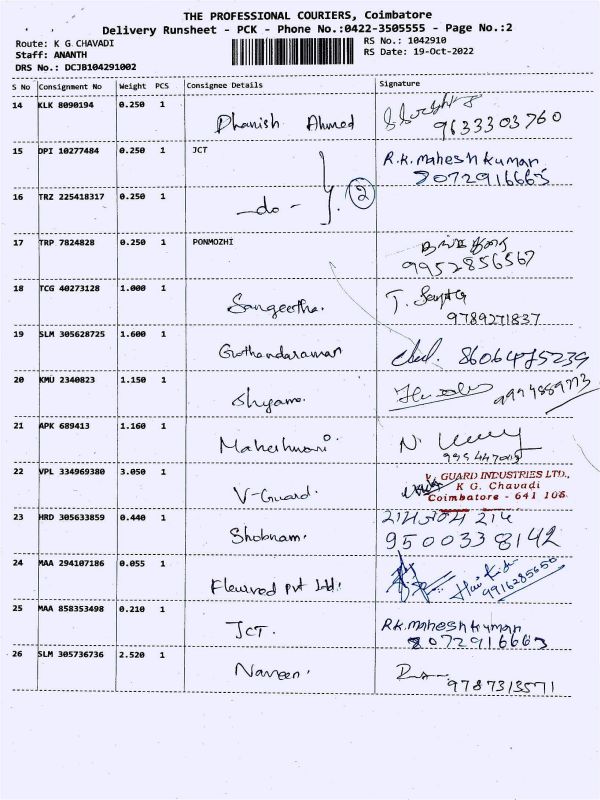 THE PROFESSIONAL COURIERS, Coimbatore
Delivery Runsheet - PCK - Phone No.:0422-3505555 - Page No.:2
Route: K G CHAVADI
RS No.: 1042910
Staff: ANANTH
RS Date: 19-Oct-2022
DRS No.: DCJB104291002
S No Consignment No Weight PCS Consignee Details Signature
14 KLK 8090194 0.250 1 Dhanish Ahmed 9633303760
15 DPI 10277484 0.250 1 JCT R.K.maheshkumar
8072916665
16 TRZ 225418317 0.250 1 -do- 2
17 TRP 7824828 0.250 1 PONMOZHI
9952856567
18 TCG 40273128 1.000 1 Sangeetha.
9789271837
19 SLM 305628725 1.600 1 Gothandaraman 8606475239
20 KMU 2340823 1.150 1 Shyamo.
21 APK 689413 1.160 1 Maheshwari
22 VPL 334969380 3.050 1 V-Guard. V. GUARD INDUSTRIES LTD.,
K G. Chavadi
Coimbatore - 641 108
23 HRD 305633859 0.440 1 Shobnam.
9500338142
24 MAA 294107186 0.055 1 Pvt Ltd.
9916285650
25 MAA 858353498 0.210 1 JCT. R.K.maheshkumar
8072916665
26 SLM 305736736 2.520 1 Naveen.
9787313571